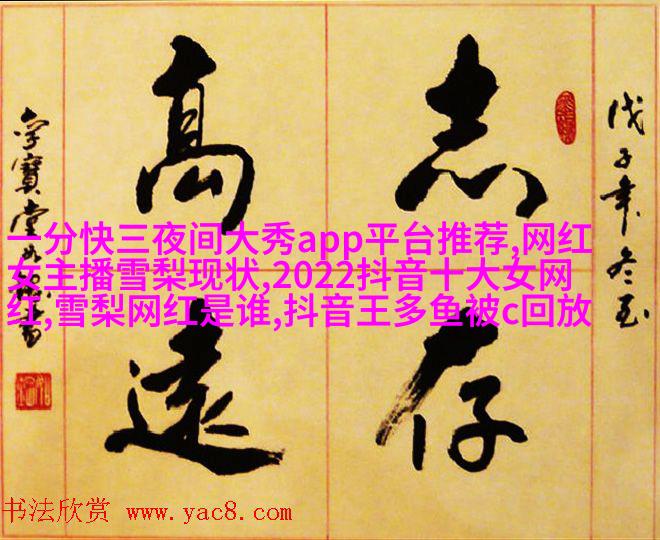 戊子年冬至
志存
高遠
一分快三夜间大秀app平台推荐,网红
女主播雪梨现状,2022抖音十大女网
红,雪梨网红是谁,抖音王多鱼被c回放
书法欣赏 www.yac8.com